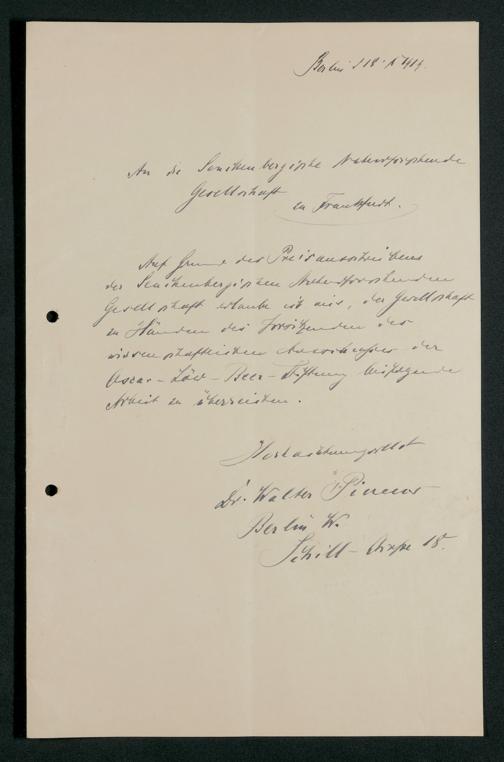 Berlin d 18. X 1914.
An die Senckenbergische Naturforschende
Gesellschaft
in Frankfurt.
Auf Grund des Preisausschreibens
der Senckenbergischen Naturforschenden
Gesellschaft erlaube ich mir, der Gesellschaft
zu Händen des Vorsitzenden des
wissenschaftlichen Ausschusses der
Oscar-Löw-Beer-Stiftung beifolgende
Arbeit zu überreichen.
Hochachtungsvoll
Dr. Walter Pincus
Berlin W.
Schill-straße 18.